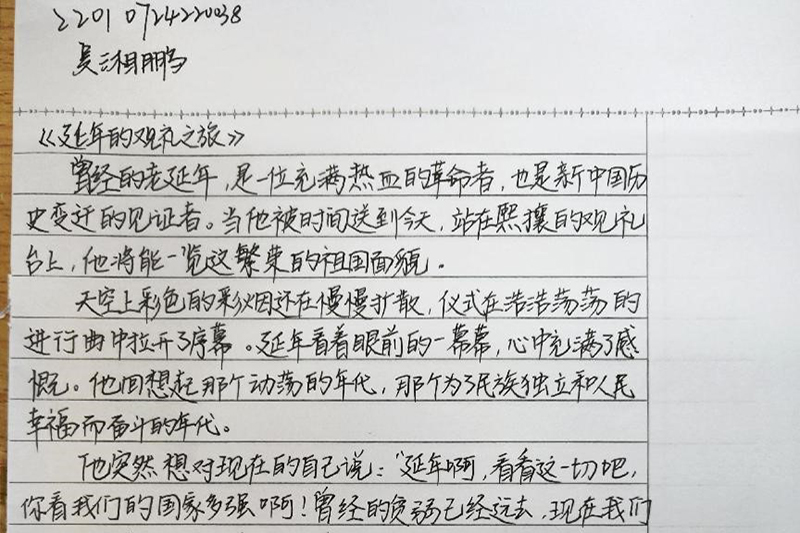 2201 0724220038
吴湘鹏
《延年的观礼之旅》
曾经的老延年，是一位充满热血的革命者，也是新中国历
史变迁的见证者。当他被时间送到今天，站在熙攘的观礼
台上，他将能一览这繁荣的祖国面貌。
天空上彩色的彩烟还在慢慢扩散，仪式在浩浩荡荡的
进行曲中拉开了序幕。延年看着眼前的一幕幕，心中充满了感
慨。他回想起那个动荡的年代，那个为了民族独立和人民
幸福而奋斗的年代。
他突然想对现在的自己说：“延年啊，看看这一切吧，
你看我们的国家多强啊！曾经的贫弱已经远去，现在我们